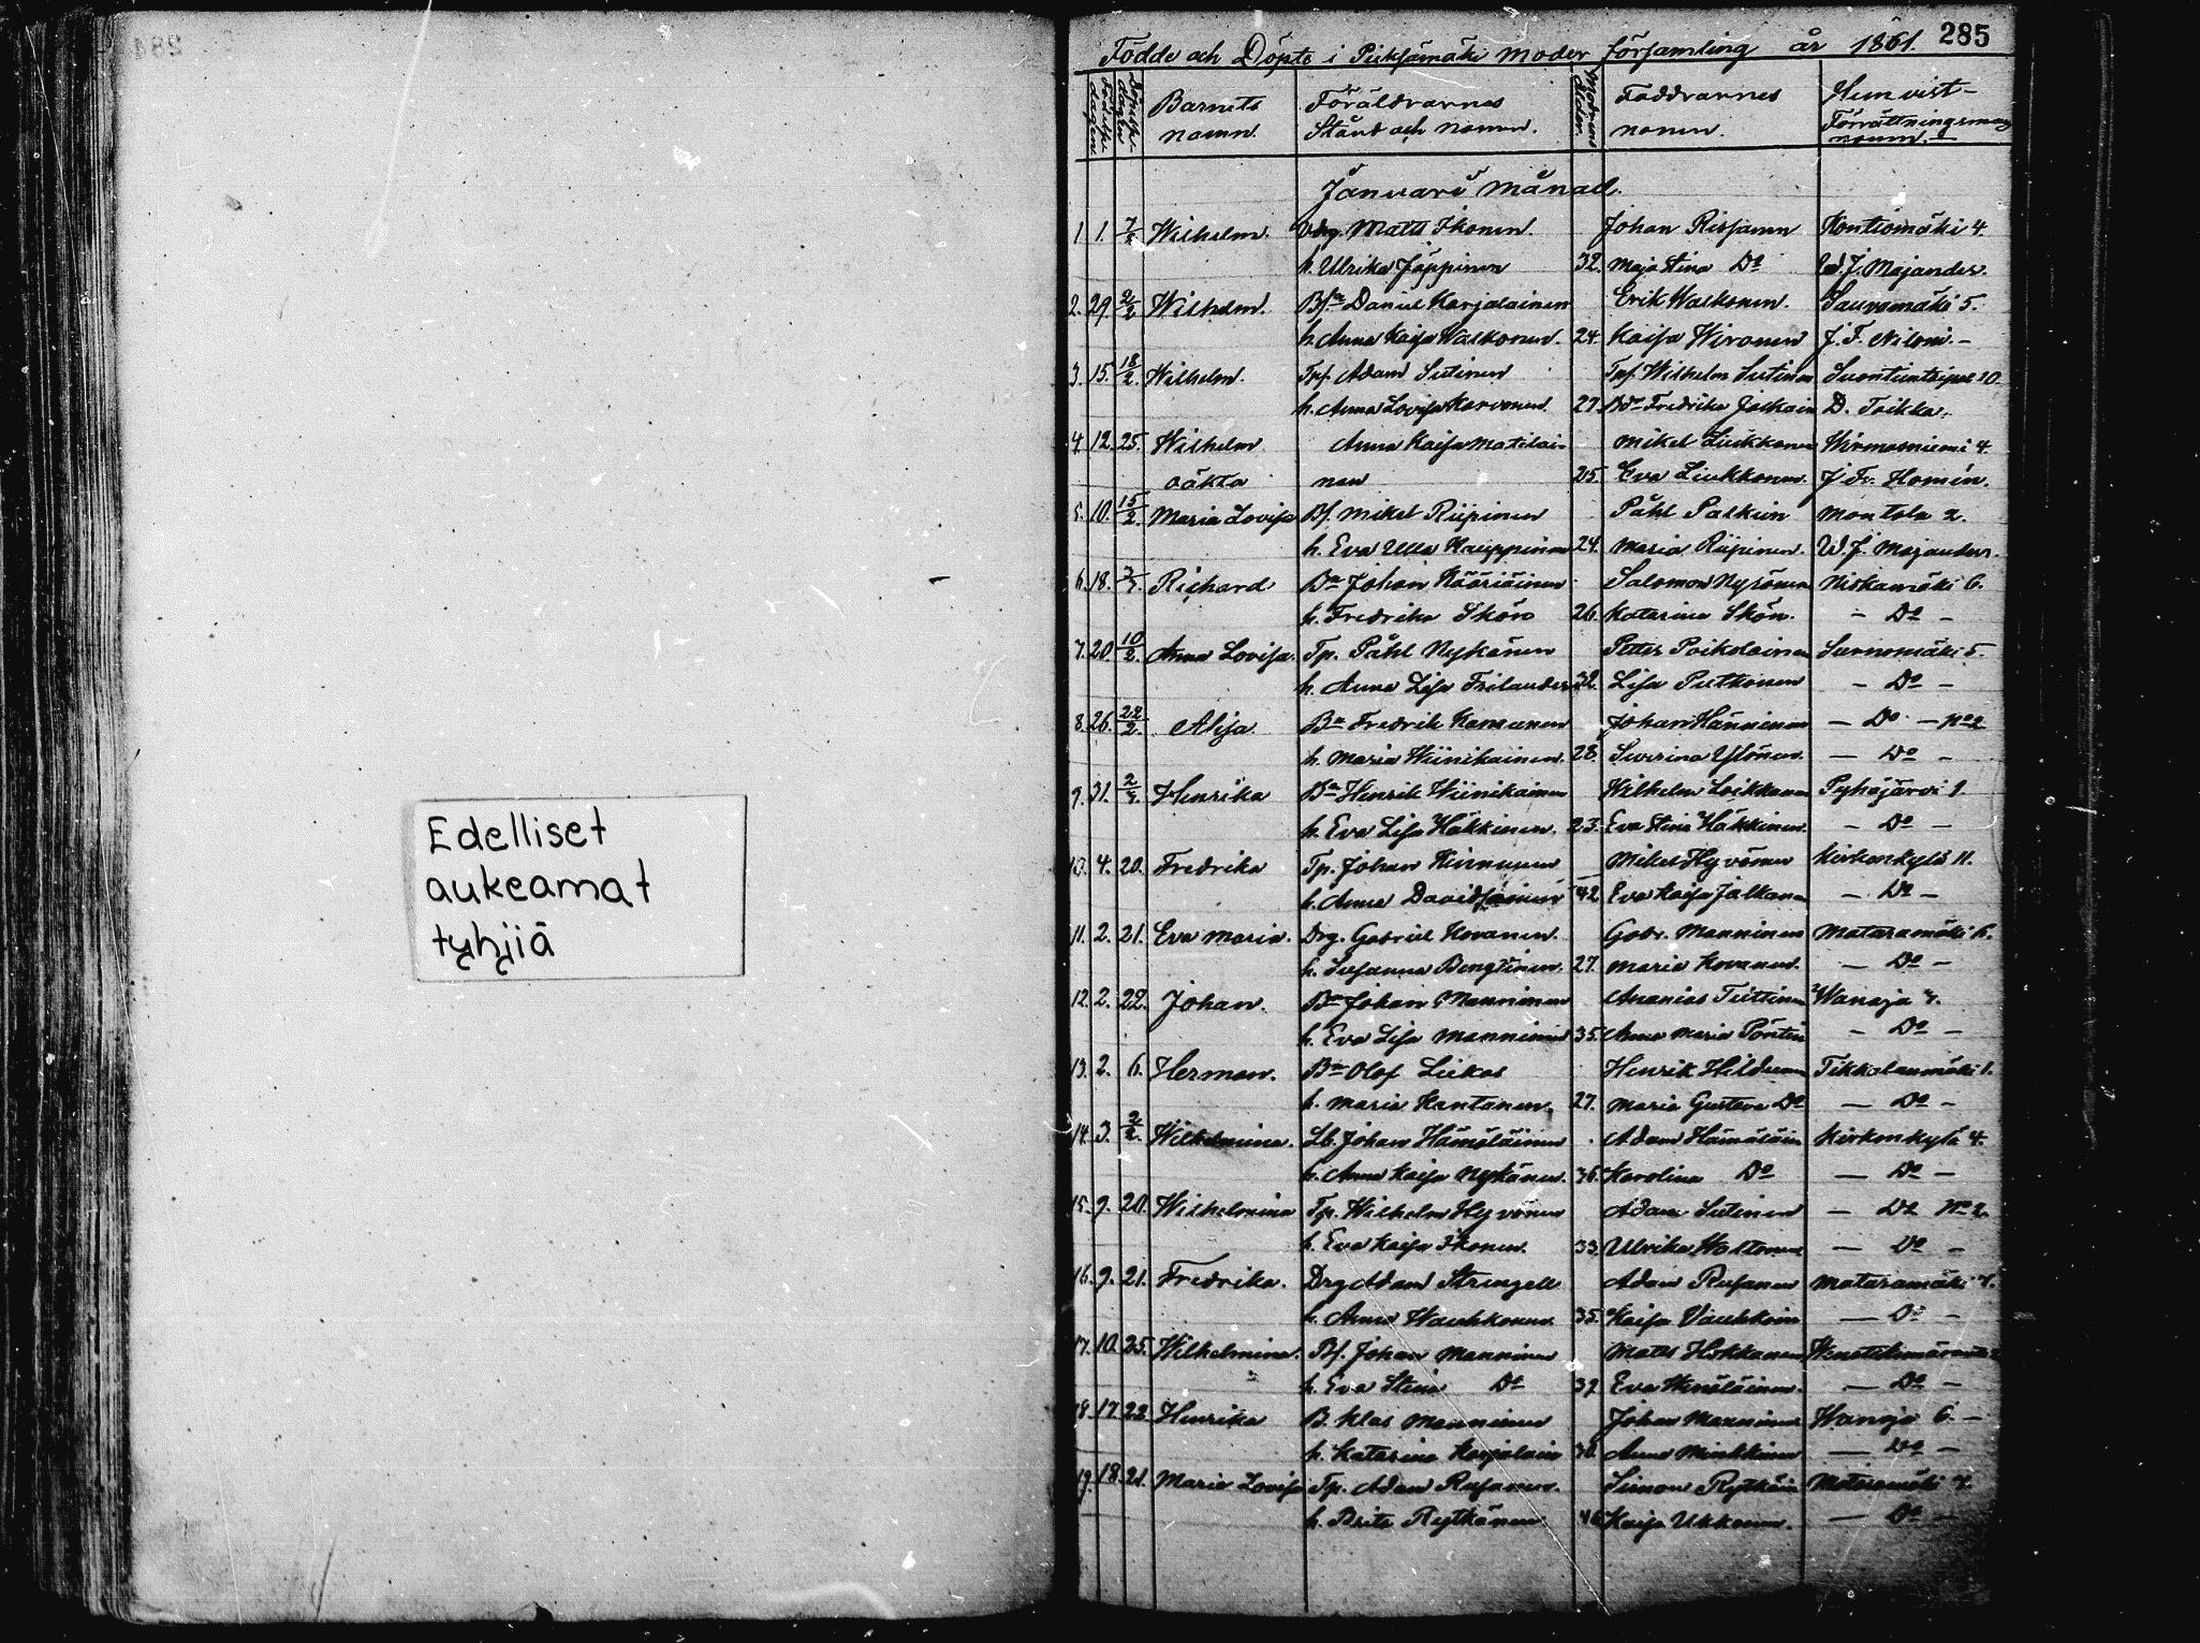 Edelliset
aukeamat
tyhjiä
285
Födde och Döpte i Pieksämäki Moder församling år 1861.
Födelse dagen. Döpelse dagen. Barnets namn. Föräldrarnes Stånd och namn. Modrens ålder. Faddrarnes namn. Hemvist – Förrättningsman namn.
Januari Månad.
1. 1. Wilhelm. Matts Ikonen. Johan Kontiomäki 4.
h. Ulrika Jäppinen 32. Maja Stina Do W. J. Majander.
2. 29. 2/2 Wilhelm. Daniel Karjalainen Erik Waskonen. 5.
h. Anna Kaisa Waskonen. 24. Kaisa Wironen J. F.
3. 15. 18/2. Wilhelm. Adam Sutinen Wilhelm Sutinen 10.
h. Anna Lovisa Karvonen. 27. Fredrika D. Toikka.
4. 12. 25. Wilhelm Anna Kaisa Matilai- Mikel Liukkonen 4.
oäkta nen 25. Eva Liukkonen. J. Fr. Homén.
5. 10. 15/2. Maria Lovisa Bf. Mikel Riipinen Påhl Paskin Montola 2.
h. Eva Ulla Kauppinen 24. Maria Riipinen. W. J. Majander.
6. 18. Richard Bn Johan Kääriäinen Salomon Nyyssönen Niskamäki 6.
h. Fredrika Skön 26. Katarina Skön. – Do –
7. 20. 10/2. Anna Lovisa. Tp. Påhl Nykänen Petter Poikolainen Surnumäki 5.
h. Anna Lisa Frilander 32. Lisa Putkonen – Do –
8. 26. 22/2. Alisa Bn Fredrik Johan Hänninen – Do – No 2
h. Maria Wiinikainen. 28. Severina Ylönen. – Do –
9. 31. Henrika Bn Henrik Wiinikainen Wilhelm Loikkanen Pyhäjärvi 1.
h. Eva Lisa Häkkinen. 23. Eva Stina Häkkinen. – Do –
10. 4. 20. Fredrika Tp. Johan Kinnunen Mikel Hyvönen Kirkonkylä 11.
h. Anna Davidsainen 42. Eva Kaisa Jalkanen – Do –
11. 2. 21. Eva Maria. Drg. Gabriel Kovanen. Gabr. Manninen Mataramäki 6.
h. Susanna Bengtinen. 27. Maria Kovanen. – Do –
12. 2. 22. Johan. Bn Johan Manninen Ananias Tiittinen Wanaja 4.
h. Eva Lisa Manninen 35. Anna Maria Pöntin – Do –
13. 2. 6. Herman. Bn Olof Liekas Henrik Hildunen Tikkalanmäki 1.
h. Maria Kantanen. 27. Maria Gustava Do – Do –
14. 3. 2/2. Wilhelmina. Lb. Johan Hämäläinen Adam Hämäläin Kirkonkylä 4.
h. Anna Kaisa Nykänen. 36. Karolina Do – Do –
15. 9. 20. Wilhelmina Tp. Wilhelm Hyvönen Adam Sutinen – Do No 2.
h. Eva Kaisa Ikonen. 33. Ulrika – Do –
16. 9. 21. Fredrika. Drg Adam Strengell Adam Rusanen Mataramäki 7.
h. Anna Wauhkonen. 35. Kaisa Vauhkoin – Do –
17. 10. 25. Wilhelmina. Bf. Johan Manninen Matts Hokkanen
h. Eva Stina Do 39. Eva Wenäläinen. – Do –
18. 17. 22. Henrika B. Klas Manninen Johan Manninen Wanaja 6. –
h. Katarina Karjalain 30. Anna Minkkinen – Do –
19. 18. 21. Maria Lovisa Tp. Adam Rusanen. Simon Rytköin Mataramäki 4.
h. Brita Rytkönen Kaisa Ukkonen. – Do –